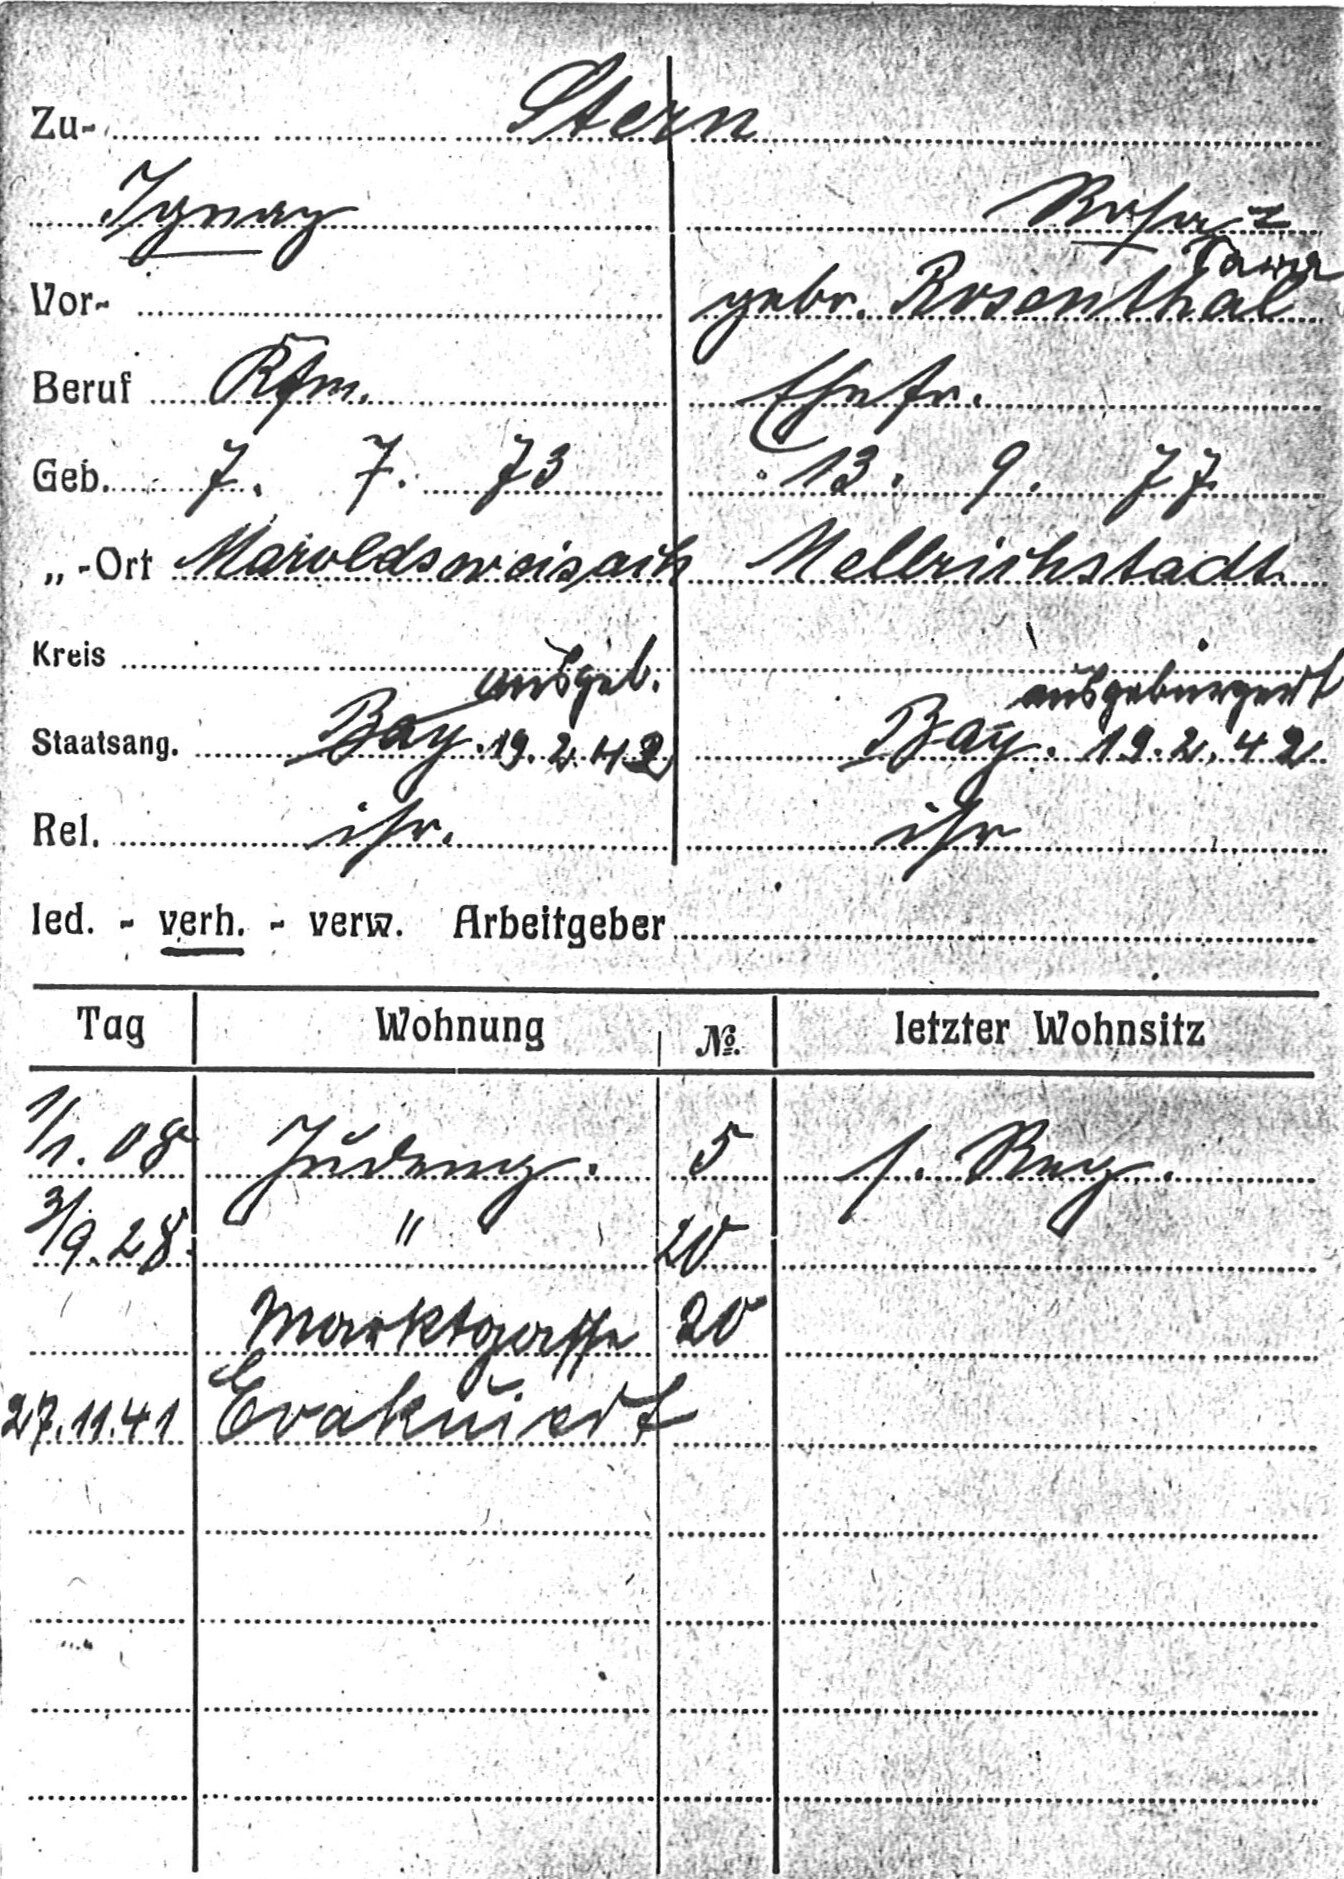 Zu- Stern
Ignaz Rosa
Sara
Vor- gebr. Rosenthal
Beruf Kfm. Ehefr.
Geb. 7. 7. 73 13. 9. 77
„-Ort Maroldsweisach Mellrichstadt
Kreis
ausgeb. ausgebürgert
Staatsang. Bay. 19.2.42 Bay. 19.2.42
Rel. isr. isr
led. - verh. - verw. Arbeitgeber
Tag Wohnung No. letzter Wohnsitz
1/1. 08 Judeng. 5 s. Reg.
3/9. 28. " 20
Marktgasse 20
27.11.41 Evakuiert